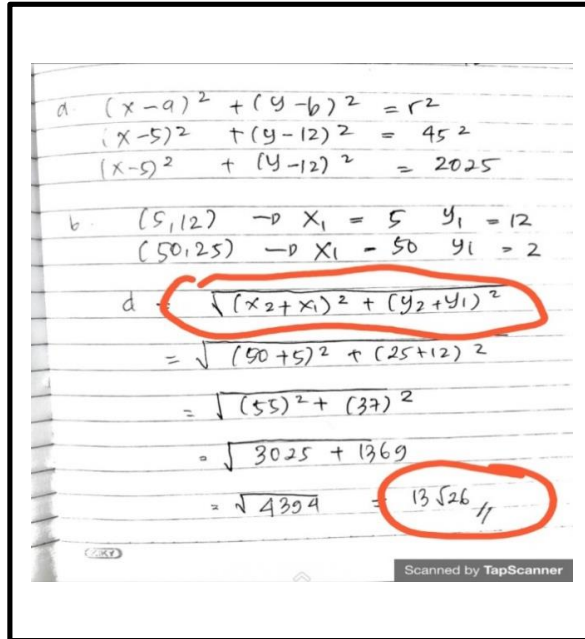 a. (x-a)² + (y-b)² = r²
(x-5)² + (y-12)² = 45²
(x-5)² + (y-12)² = 2025
b. (5,12) → x₁ = 5 y₁ = 12
(50,25) → x₁ = 50 y₁ = 2
d = √(x₂+x₁)² + (y₂+y₁)²
= √(50+5)² + (25+12)²
= √(55)² + (37)²
= √3025 + 1369
= √4394 = 13√26 //
Scanned by TapScanner